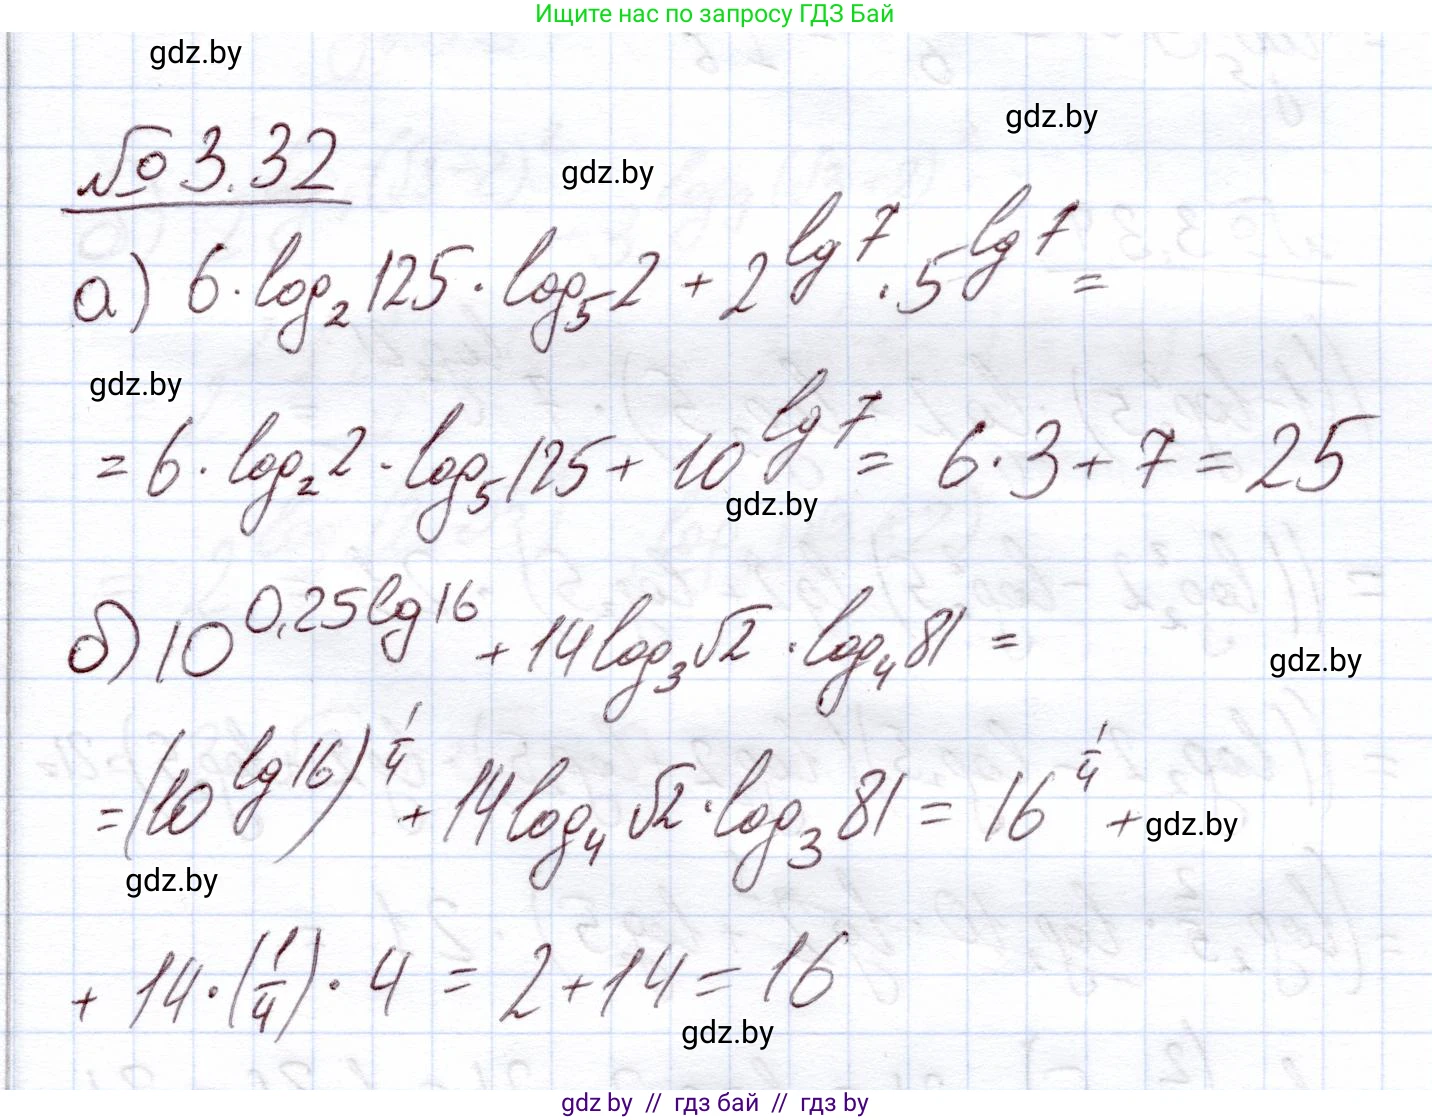 Ищите нас по запросу ГДЗ Бай
gdz.by
gdz.by
gdz.by
№ 3.32
а) 6·log₂125·log₅2 + 2^(lg 7)·5^(lg 7) =
gdz.by
= 6·log₂2·log₅125 + 10^(lg 7) = 6·3 + 7 = 25
gdz.by
б) 10^(0,25lg16) + 14log₃√2·log₄81 =
gdz.by
= (10^(lg16))^(1/4) + 14log₄√2·log₃81 = 16^(1/4) +
gdz.by
gdz.by
+ 14·(1/4)·4 = 2 + 14 = 16
gdz.by
gdz by // гдз бай // гдз by